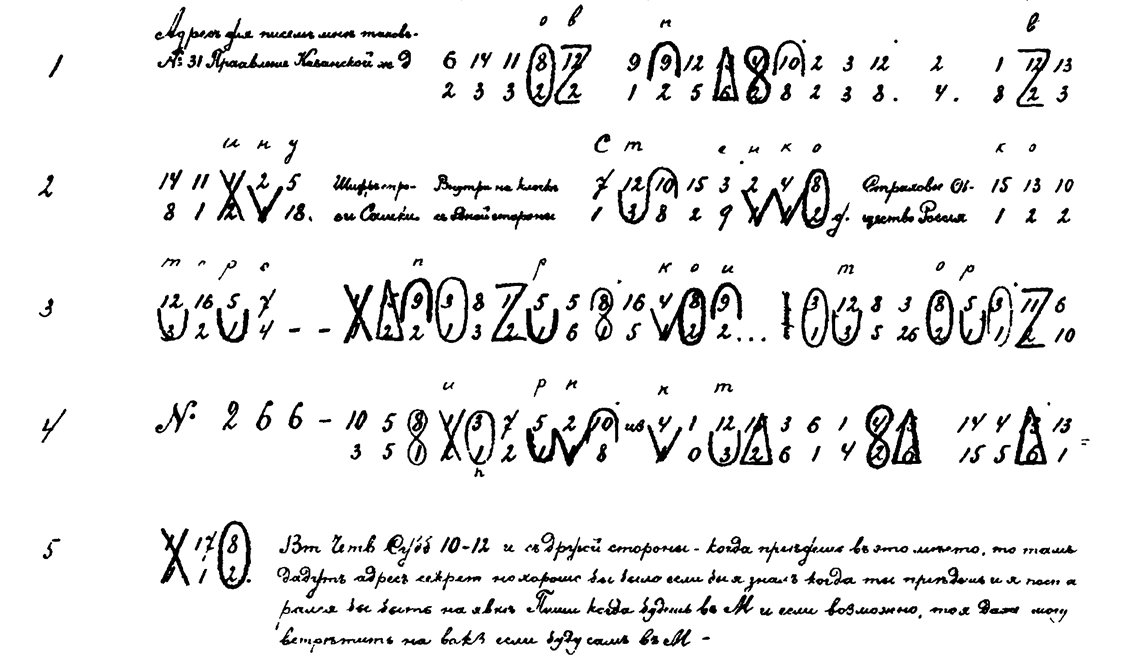 о в н в
1 Адресъ для писемъ мнѣ таковъ.
№ 31 Правление Казанской ж д 6 14 11 8 12 9 9 12 13 4 10 2 3 12 2 1 12 13
2 3 3 2 2 1 2 5 6 2 8 2 3 8. 4. 8 2 3
и н у С т е и к о к о
2 14 11 1 2 5 Шифръ стро- Внутри на клочкѣ 7 12 10 15 3 2 4 8 Страховое Об- 15 13 10
8 1 2 1 18. съ одной стороны 1 3 8 2 9 1 1 2 щество Россия 1 2 2
т р с п р к о и т о р
3 12 16 5 7 1 5 9 3 8 11 5 5 8 16 4 8 9 3 12 8 3 8 5 3 11 6
3 2 1 4 - - 1 2 2 1 3 2 1 6 1 5 1 2 2 ... 1 3 5 26 2 1 1 2 10
и р н к т
4 № 2 6 6 - 10 5 8 1 3 7 5 2 10 из 4 1 12 11 3 6 1 4 13 14 4 13 13
3 5 1 2 1 2 1 1 8 1 0 3 2 6 1 4 2 6 15 5 6 1 =
п
5 1 17 8 Вт Четв Субб 10-12 и съ другой стороны - когда приѣдешь въ это мѣсто, то тамъ
1 1 2. дадутъ адресъ секрет но хорошо бы было если бы я зналъ когда ты приѣдешь и я пост а
рался бы быть на явкѣ Пиши когда будешь въ М и если возможно, то я даже могу
встрѣтить на вокз если буду самъ въ М -